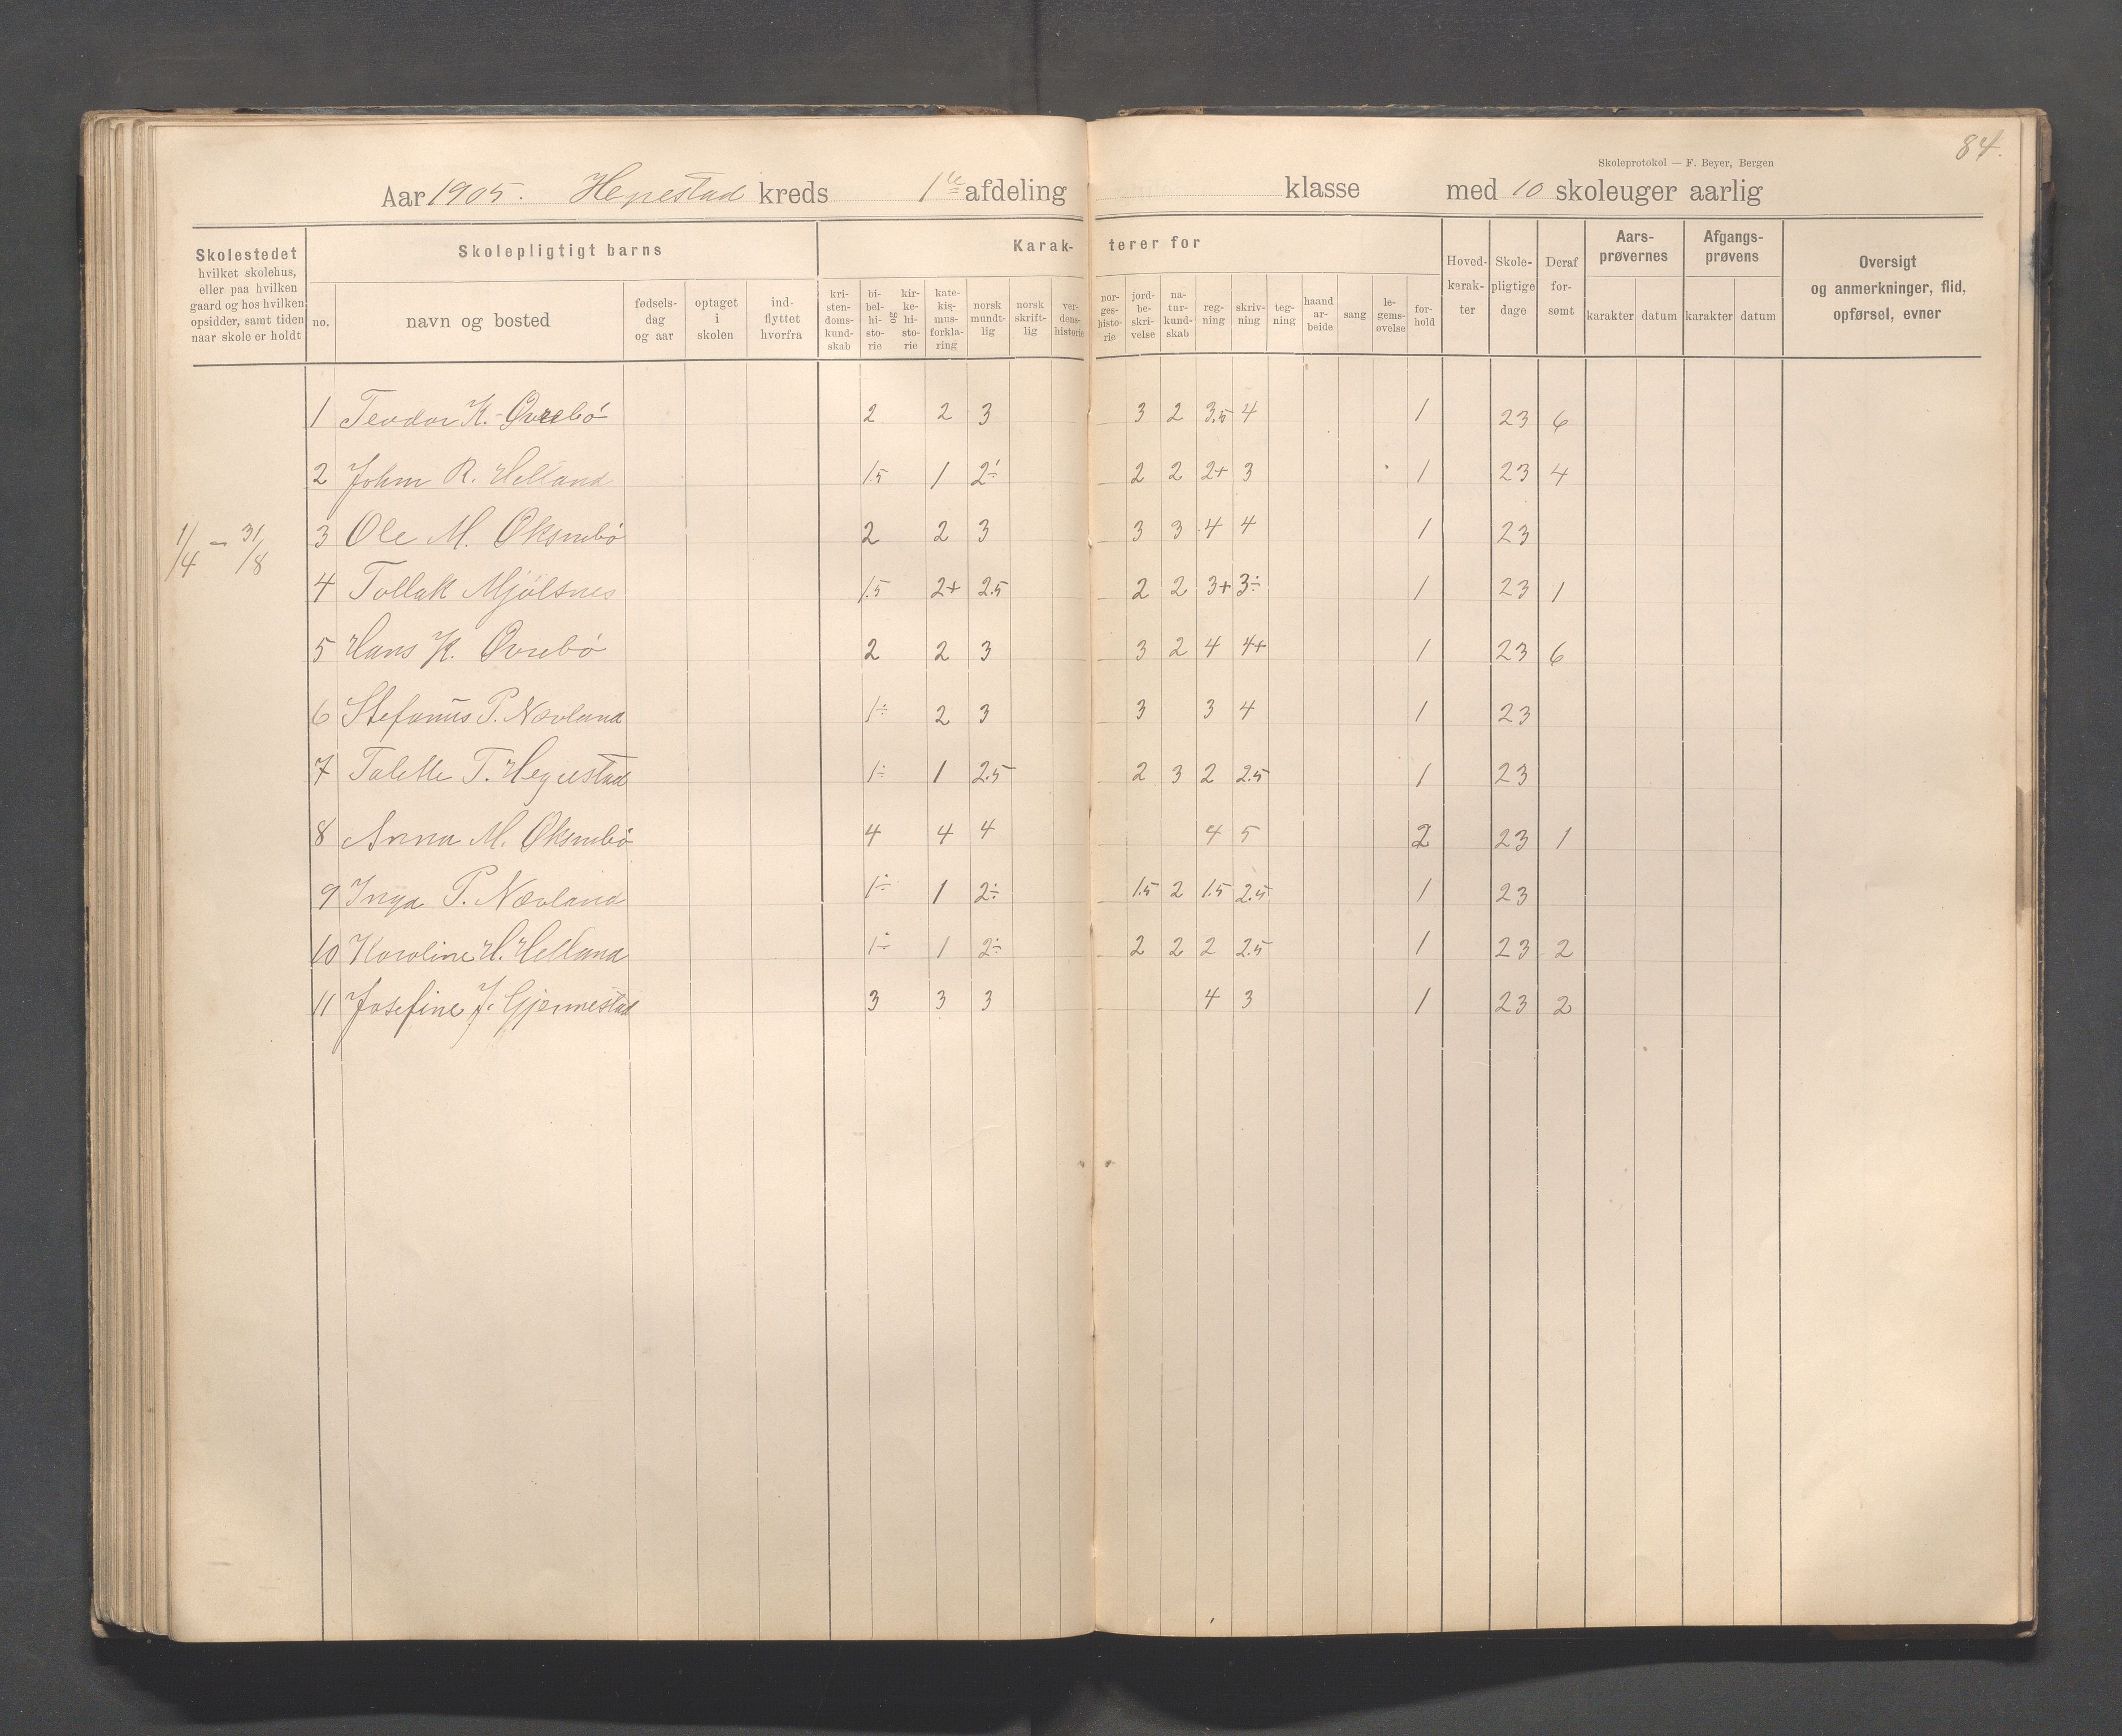 84.
Skoleprotokol — F. Beyer, Bergen
Aar 1905. Hegrestad kreds 1ste afdeling klasse med 10 skoleuger aarlig
Skolestedet hvilket skolehus, eller paa hvilken gaard og hos hvilken opsidder, samt tiden naar skole er holdt
Skolepligtigt barns
Karak- terer for
no.
navn og bosted
fødsels- dag og aar
optaget i skolen
ind- flyttet hvorfra
kri- sten- doms- kund- skab
bi- bel- hi- sto- rie
og
kir- ke- hi- sto- rie
kate- kis- mus- forkla- ring
norsk mundt- lig
norsk skrift- lig
ver- dens- historie
nor- ges- histo- rie
jord- be- skri- velse
na- tur- kund- skab
reg- ning
skriv- ning
teg- ning
haand ar- beide
sang
le- gems- øvelse
for- hold
Hoved- karak- ter
Skole- pligtige dage
Deraf for- sømt
Aars- prøvernes
karakter datum
Afgangs- prøvens
karakter datum
Oversigt og anmerkninger, flid, opførsel, evner
1 Teodor K. Øvrebö 2 2 3 3 2 3.5 4 1 23 6
2 John R. Helland 1.5 1 2÷ 2 2 2+ 3 1 23 4
1/4 — 31/8
3 Ole M. Øksnebö 2 2 3 3 3 4 4 1 23
4 Tollak Mjölsnes 1.5 2+ 2.5 2 2 3+ 3÷ 1 23 1
5 Hans K. Øvrebö 2 2 3 3 2 4 4+ 1 23 6
6 Stefanus P. Nævland 1÷ 2 3 3 3 4 1 23
7 Talette T. Hegrestad 1÷ 1 2.5 2 3 2 2.5 1 23
8 Anna M. Øksnebö 4 4 4 4 5 2 23 1
9 Inga P. Nævland 1÷ 1 2÷ 1.5 2 1.5 2.5 1 23
10 Karoline H. Helland 1÷ 1 2÷ 2 2 2 2.5 1 23 2
11 Josefine J. Gjermestad 3 3 3 4 3 1 23 2